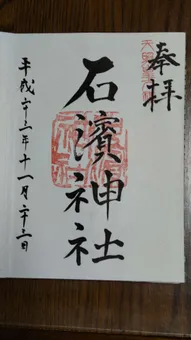 奉拝
石濱神社
平成二十二年十一月二十三日